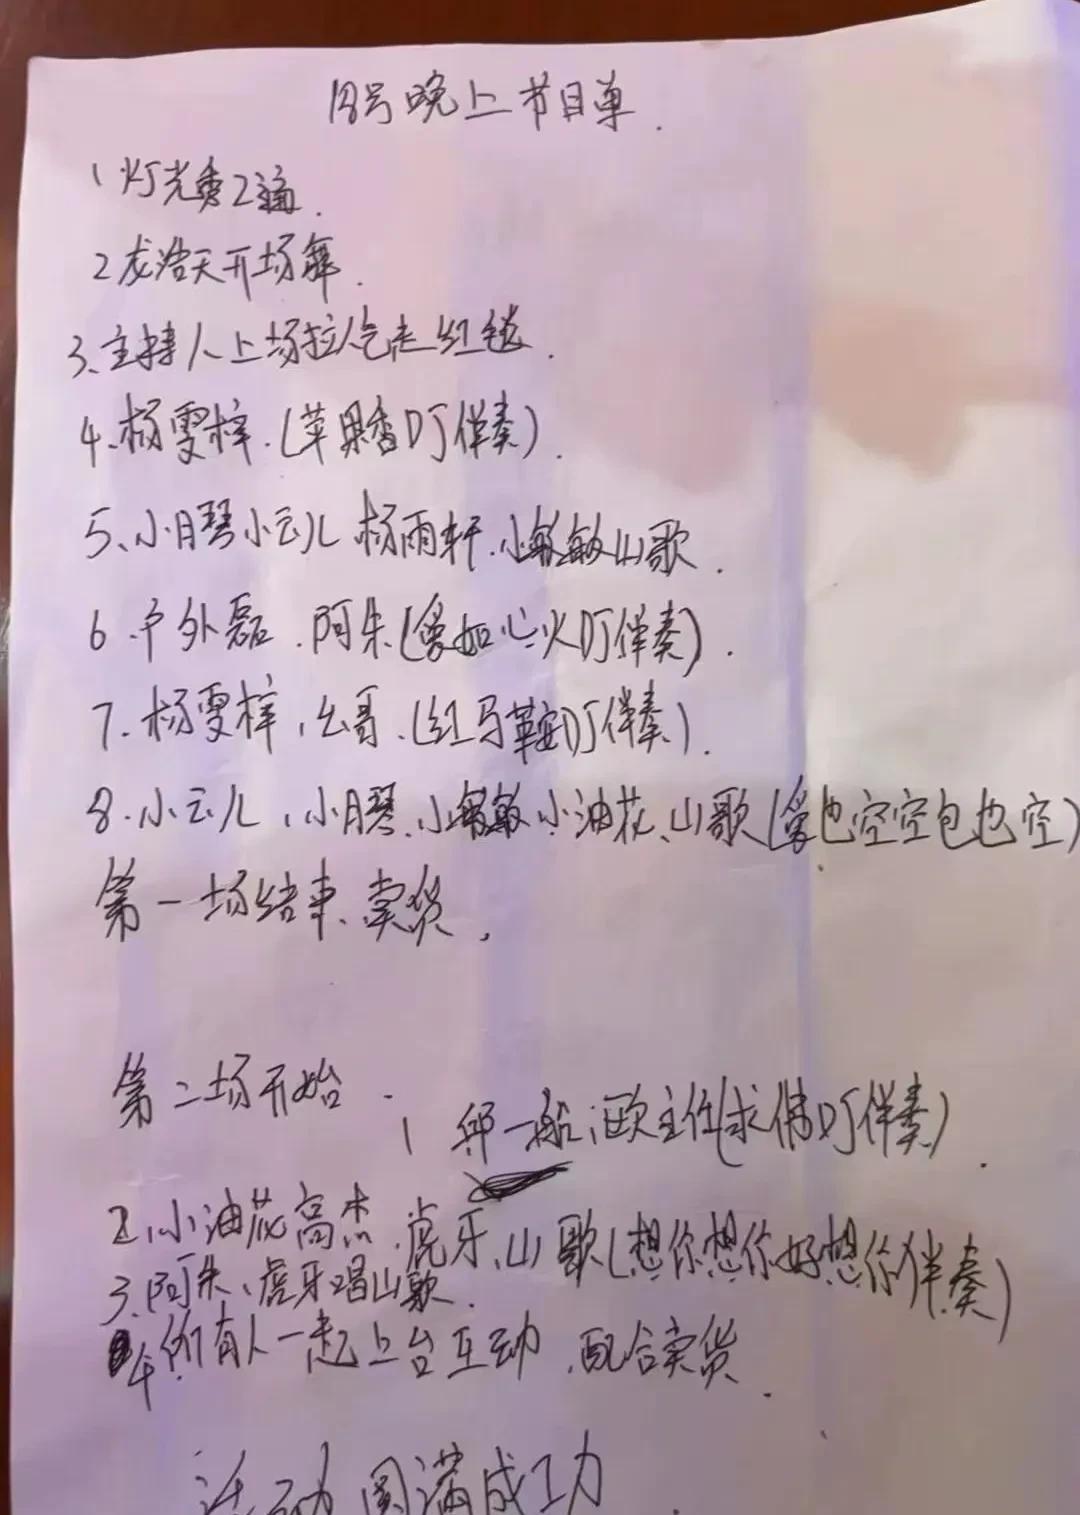 18号晚上节目单.
1灯光秀2遍.
2龙浩天开场舞.
3、主持人上场拉人气走红毯.
4、杨雯梓.(苹果香DJ伴奏).
5、小月琴小云儿 杨雨轩.小敏敏山歌.
6.户外磊.阿朱(爱如心火DJ伴奏).
7.杨雯梓、幺哥.(红马鞍DJ伴奏).
8.小云儿、小月琴、小敏敏小油花、山歌(爱也空空包也空)
第一场结束、卖货.
第二场开始.
1 邱一船、欧主任(求佛DJ伴奏).
2、小油花高杰.虎牙、山歌(想你想你好想你伴奏)
3、阿朱、虎牙唱山歌.
4.所有人一起上台互动.配合卖货.
活动圆满成功.